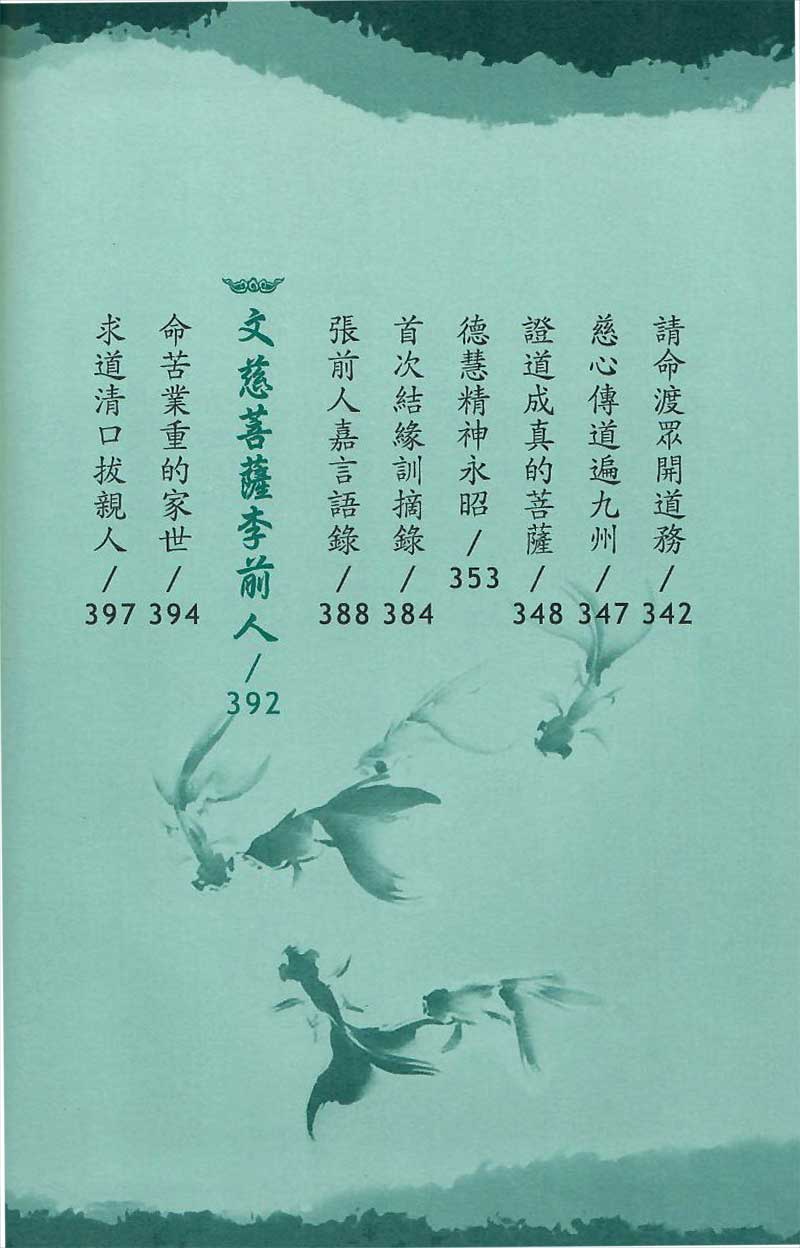 請命渡眾開道務/342
慈心傳道遍九州/347
證道成真的菩薩/348
德慧精神永昭/353
首次結緣訓摘錄/384
張前人嘉言語錄/388
文慈菩薩李前人/392
命苦業重的家世/394
求道清口拔親人/397